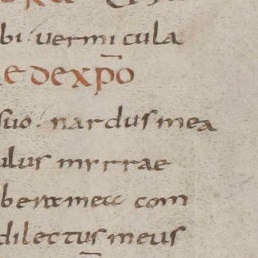 bi · vermicula
e de xp̄o
suo · nardus mea
ulus myrrae
bera mea com
dilectus meus